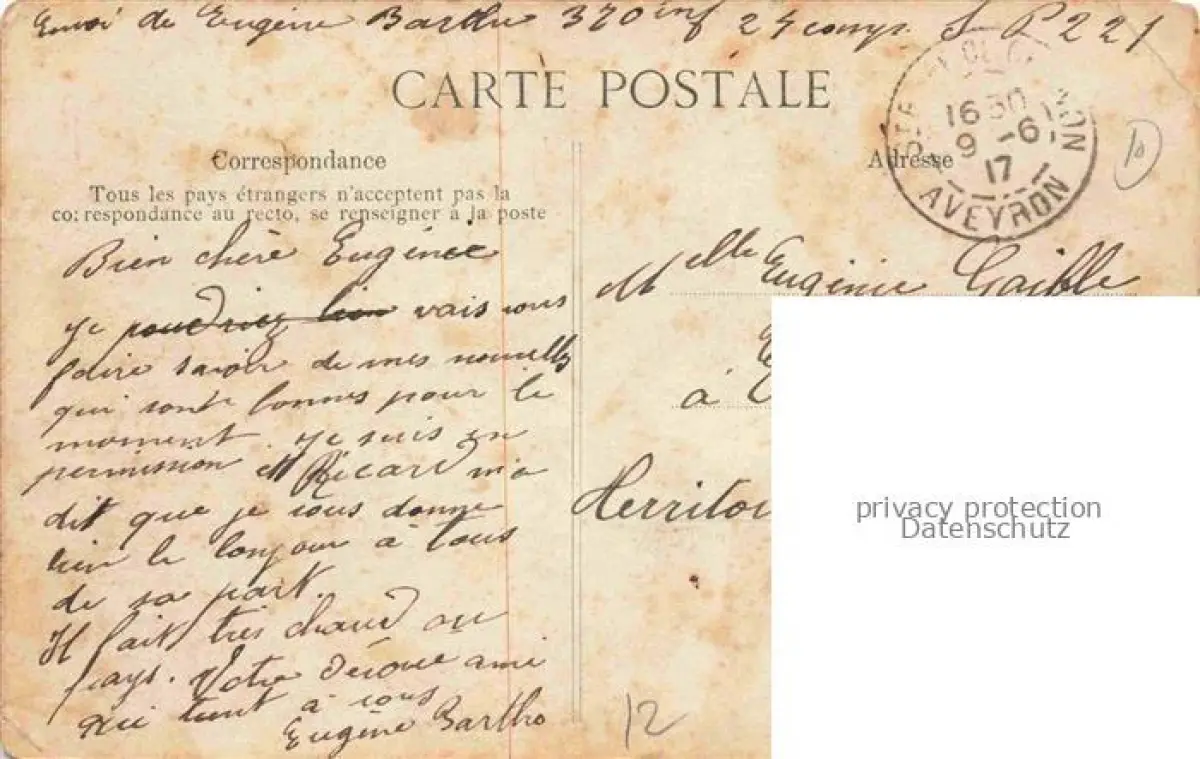 Envoi de Eugène Bartho 370 inf 24 comp. S. P. 221
CARTE POSTALE
Correspondance
Tous les pays étrangers n'acceptent pas la
correspondance au recto, se renseigner à la poste
Adresse
STE
16 30
9 -6
17
AVEYRON
10
Bien chère Eugénie
Je vais vous
faire savoir de mes nouvelles
qui sont bonnes pour le
moment. Je suis en
permission et Ricard m'a
dit que je vous donne
bien le bonjour à tous
de sa part.
Il fait très chaud au
pays. Votre dévoué ami
qui tient à vous
Eugène Bartho
Melle Eugénie Gaible
à
Territoi
12
privacy protection
Datenschutz